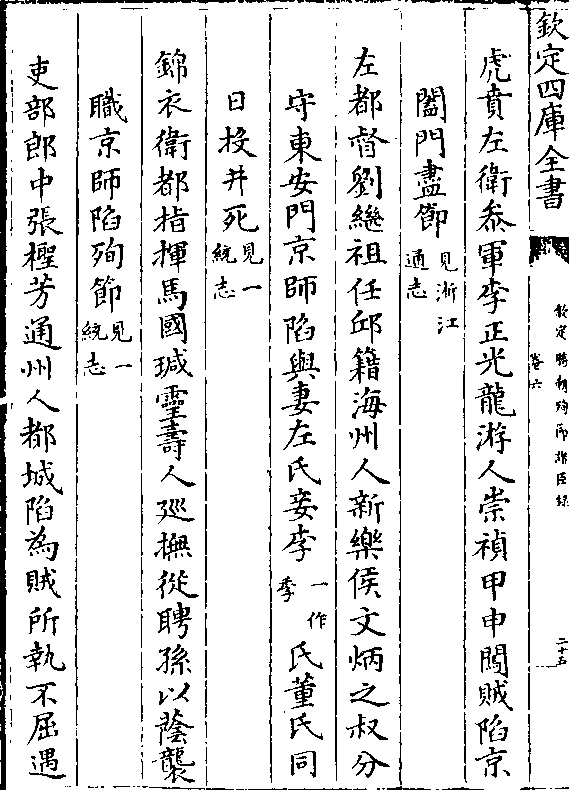 欽定四庫全書
欽定勝朝殉節諸臣錄
卷六
二十五
虎賁左衛叅軍李正光龍游人崇禎甲申闖賊陷京
闔門盡節見浙江通志
左都督劉繼祖任邱籍海州人新樂侯文炳之叔分
守東安門京師陷與妻左氏妾李一作季氏董氏同
日投井死見一統志
錦衣衛都指揮馬國瑊靈壽人廵撫從聘孫以蔭襲
職京師陷殉節見一統志
吏部郎中張𣚴芳通州人都城陷為賊所執不屈遇